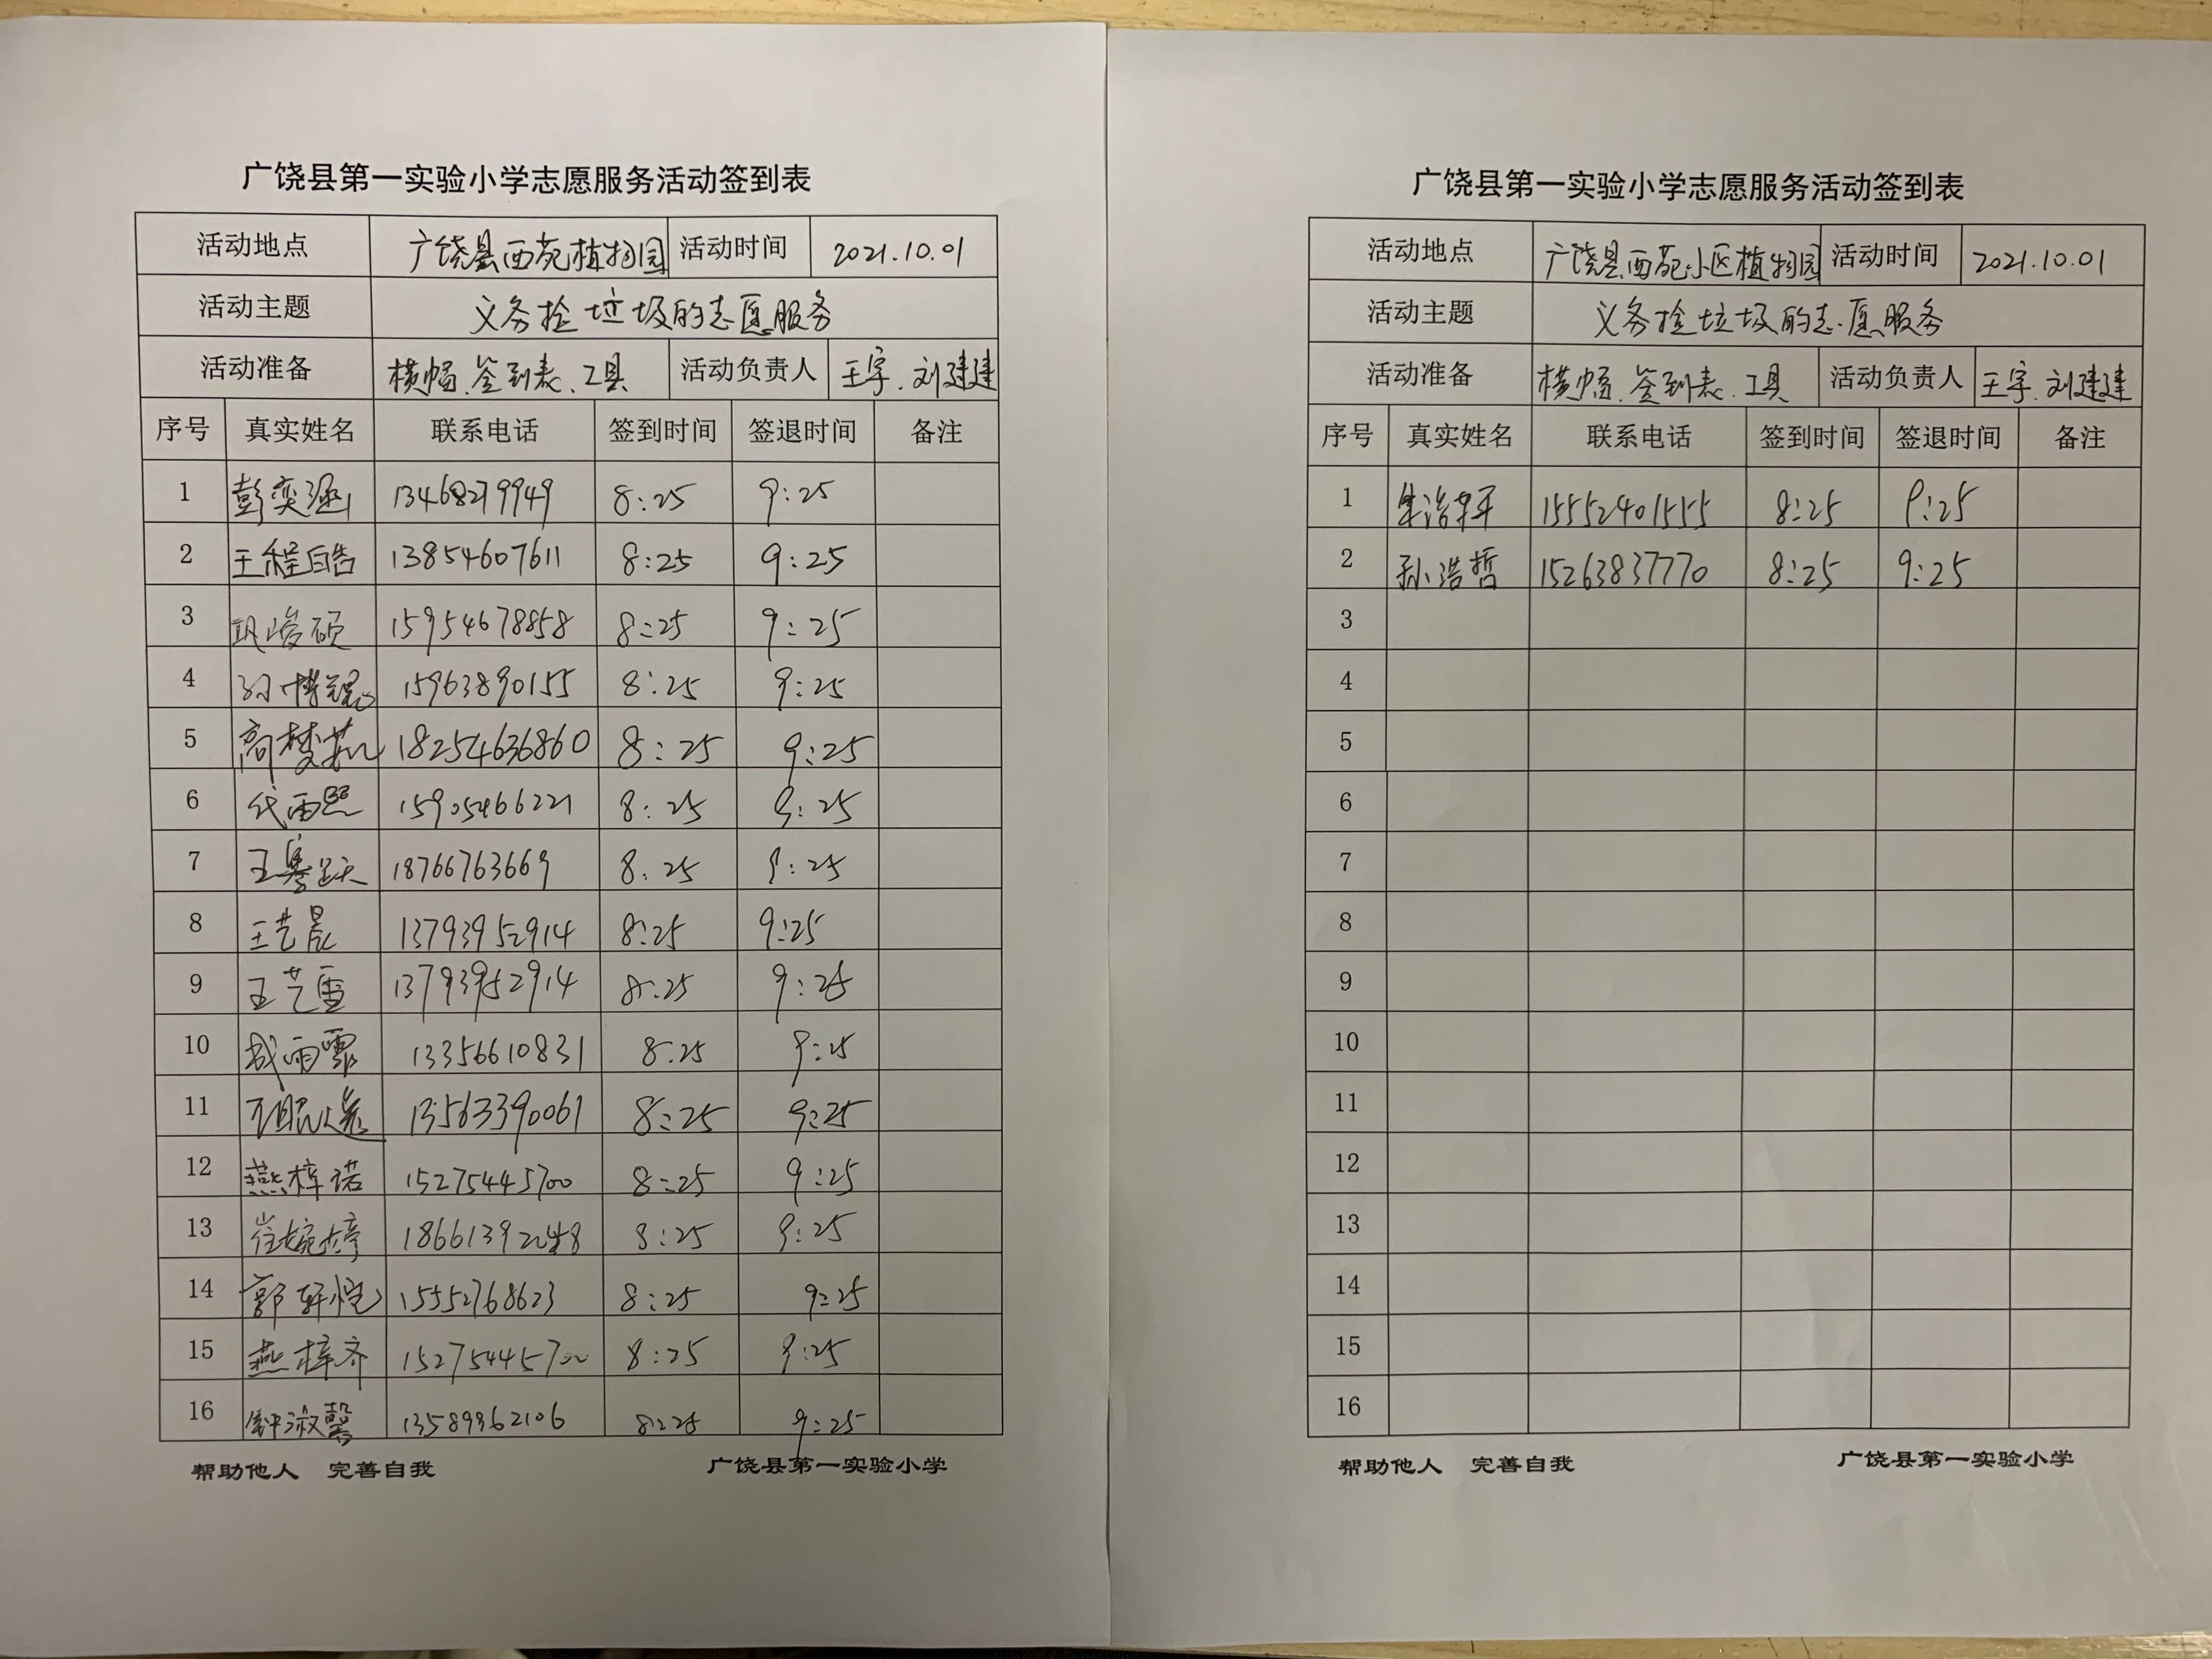 广饶县第一实验小学志愿服务活动签到表
活动地点 广饶县西苑植物园 活动时间 2021.10.01
活动主题 义务捡垃圾的志愿服务
活动准备 横幅、签到表、工具 活动负责人 王宇、刘建建
序号 真实姓名 联系电话 签到时间 签退时间 备注
1 彭奕涵 13468279949 8:25 9:25
2 王程皓 13854607611 8:25 9:25
3 巩峻硕 15954678858 8:25 9:25
4 15963890155 8:25 9:25
5 高梦 18254636860 8:25 9:25
6 代雨熙 15905466221 8:25 9:25
7 18766763669 8:25 9:25
8 王艺晨 13793952914 8:25 9:25
9 王艺蓉 13793952914 8:25 9:25
10 成雨霏 13356610831 8:25 9:25
11 13563390061 8:25 9:25
12 燕梓诺 15275445700 8:25 9:25
13 崔婉婷 8:25 9:25
14 郭轩恺 15552768623 8:25 9:25
15 燕梓齐 15275445700 8:25 9:25
16 钟淑馨 13589962106 8:25 9:25
帮助他人 完善自我 广饶县第一实验小学
广饶县第一实验小学志愿服务活动签到表
活动地点 广饶县西苑小区植物园 活动时间 2021.10.01
活动主题 义务捡垃圾的志愿服务
活动准备 横幅、签到表、工具 活动负责人 王宇、刘建建
序号 真实姓名 联系电话 签到时间 签退时间 备注
1 15552401555 8:25 9:25
2 孙浩哲 15263837770 8:25 9:25
3
4
5
6
7
8
9
10
11
12
13
14
15
16
帮助他人 完善自我 广饶县第一实验小学